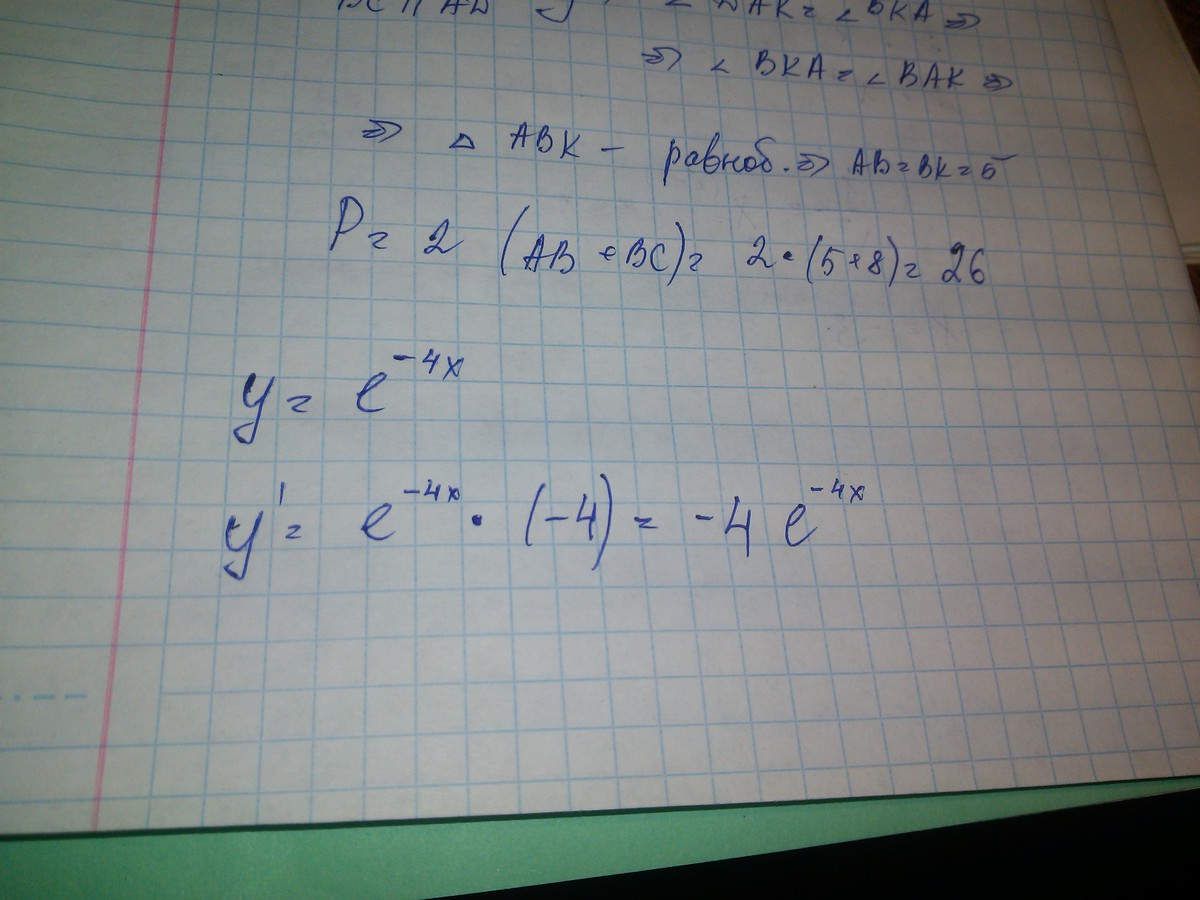 BC || AD ∠ DAK = ∠ BKA ⇒
⇒ ∠ BKA = ∠ BAK ⇒
⇒ △ ABK – равноб. ⇒ AB = BK = 5
P = 2 (AB + BC) = 2 · (5+8) = 26
y = e^{-4x}
y' = e^{-4x} · (-4) = -4 e^{-4x}